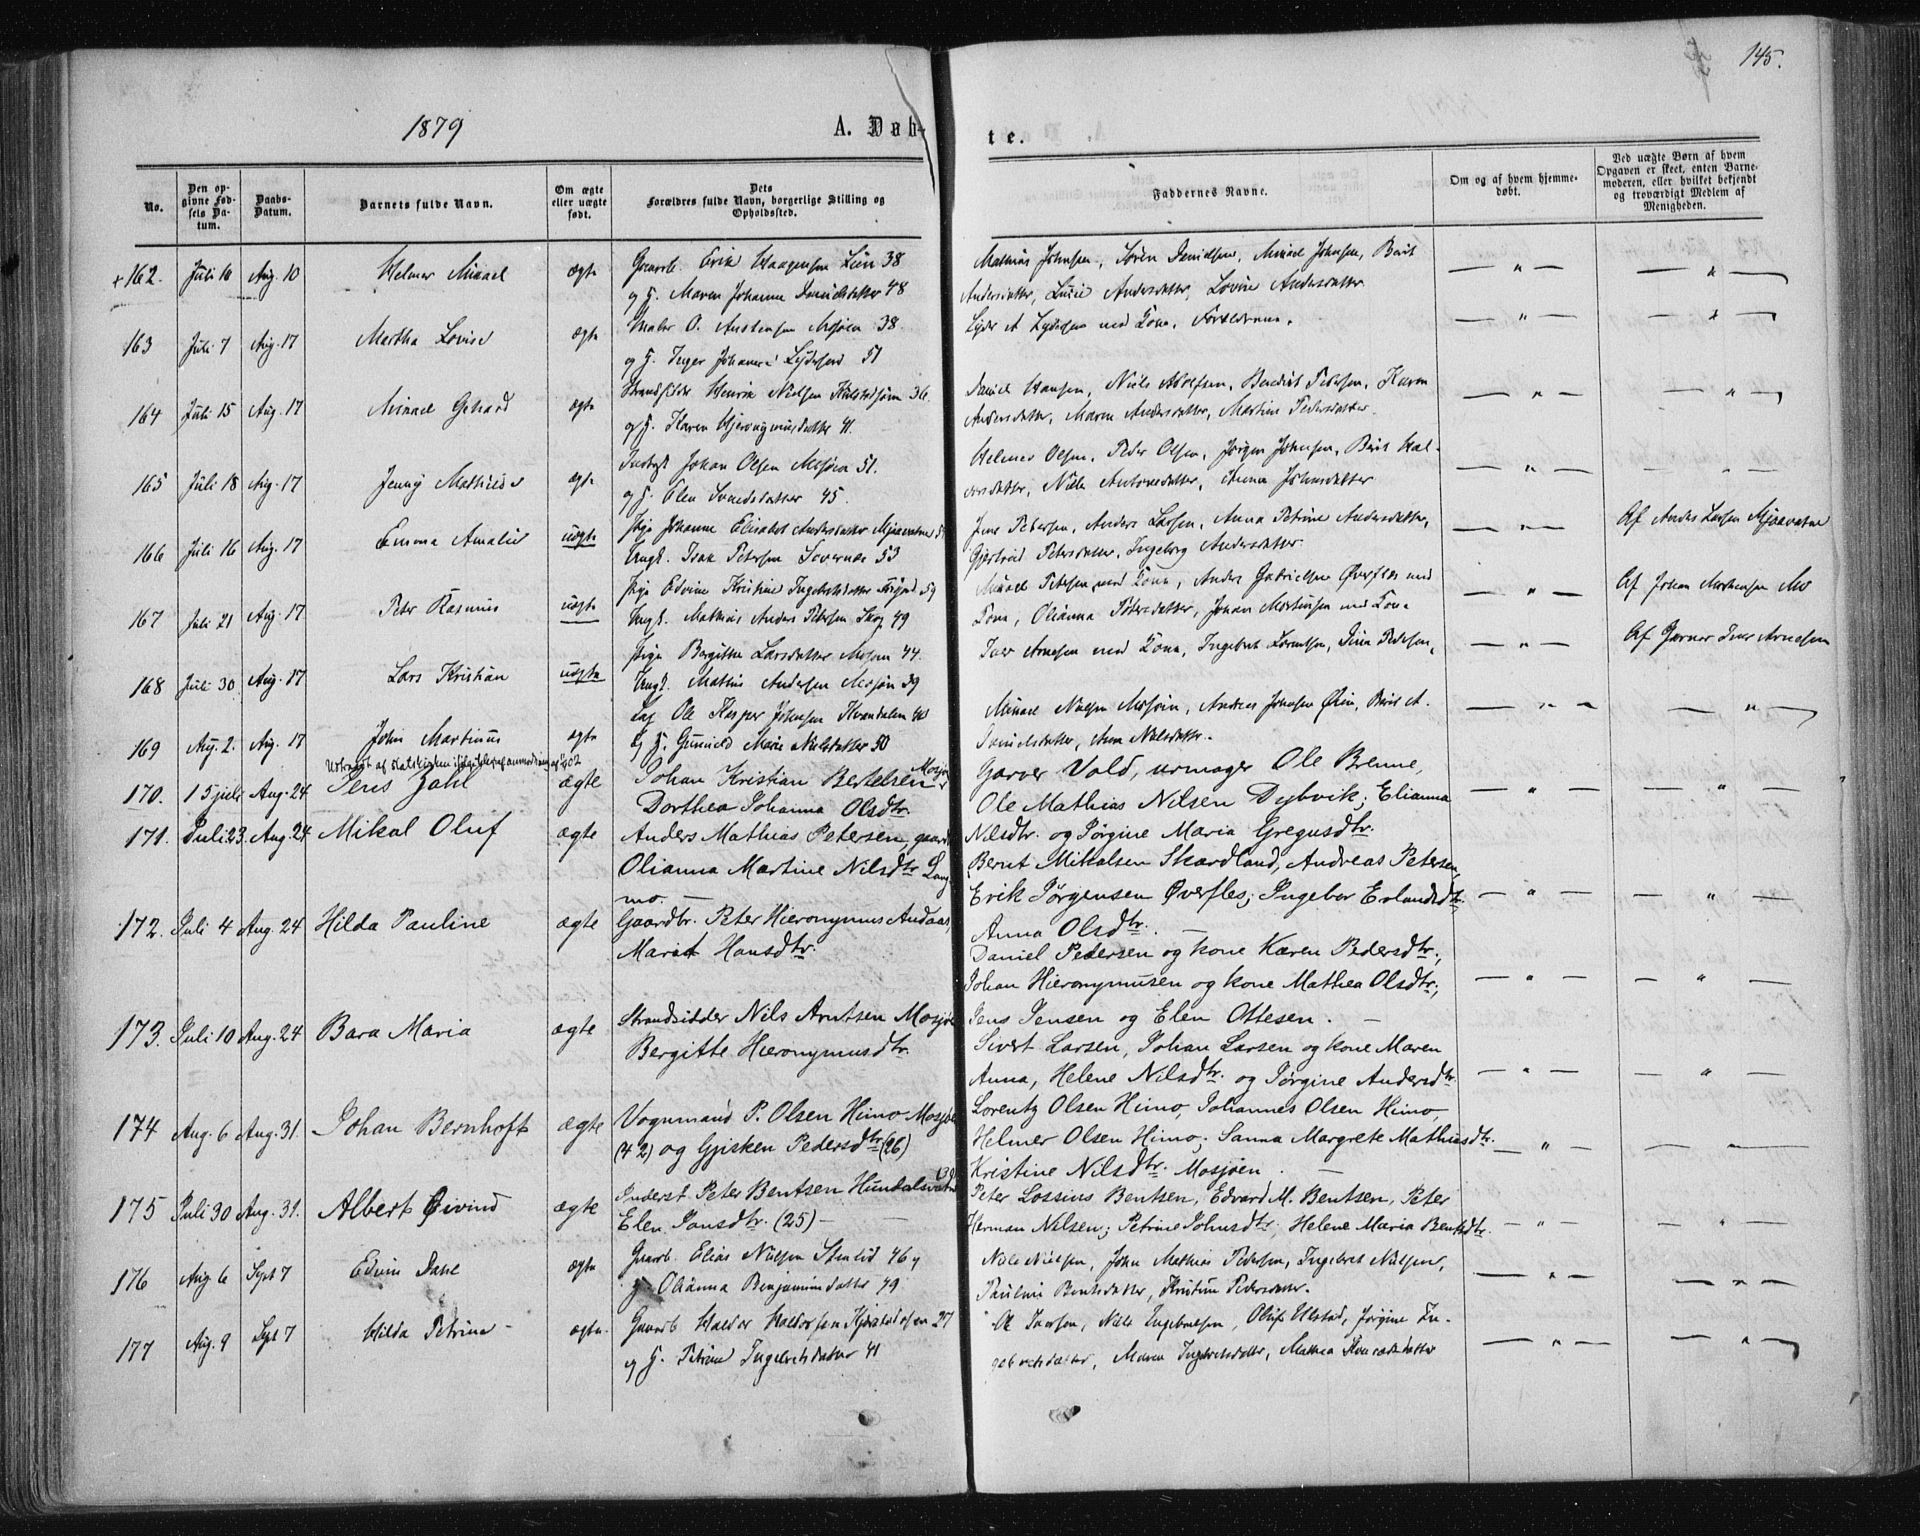 145.
1879
A. Døb-
te.
No.
Den opgivne Fødsels Datum.
Daabs-Datum.
Barnets fulde Navn.
Om ægte eller uægte født.
Dets Forældres fulde Navn, borgerlige Stilling og Opholdssted.
Faddernes Navne.
Om og af hvem hjemmedøbt.
Ved uægte Børn af hvem Opgaven er skeet, enten Barnemoderen, eller hvilket bekjendt og troværdigt Medlem af Menigheden.
+ 162. Juli 10 Aug. 10 Helmer Mikael ægte Gaardb. Erik Haagensen 38
og H. Maren Johanne Danielsdatter 48
Mathias Johnsen, Sören Danielsen, Mikael Johnsen, Berit
Andersdatter, Andersdatter, Lovise Andersdatter
163 Juli 7 Aug. 17 Martha Lovise ægte Maler O. Austensen Mosjøen 38.
og H. Inger Johanne 51
med Kone, Forældrene.
164 Juli 15 Aug. 17 Mikael ægte Strandsidder Henrik Nielsen 36.
og H. Karen Hieronymusdatter 41.
Daniel Hansen, Niels Adolfsen, Benedikt Pedersen, Karen
Andersdatter, Maren Andersdatter, Martine Pedersdatter.
165 Juli 18 Aug. 17 Jenny Mathilde ægte Johan Olsen Mosjøen 51.
og H. Elen 45.
Helmer Olsen, Peder Olsen, Jørgen Johnsen, Berit Hal-
vorsdatter, Nille Antonsdatter, Anna Johnsdatter
166 Juli 16 Aug. 17 Emma Amalie uægte Pige Johanne Elisabet Andersdatter Mjaavatne
Ungk. Isak Petersen 53
Jens Pedersen, Anders Larsen, Anna Petrine Andersdatter,
Gjertrud Petersdatter, Ingeborg Andersdatter.
Af Anders Larsen Mjaavatne
167 Juli 21 Aug. 17 Peter Rasmus uægte Pige Edvine Kristine 59
Ungk. Mathias Anders Petersen Skog 49
Mikael Petersen med Kone, Anders Gabrielsen Øverfles med
Kone, Olianna Petersdatter, Johan Mortensen med Kone
Af Johan Mortensen Mo
168 Juli 30 Aug. 17 Lars Kristian uægte Pige Bergitte Larsdatter Mosjøen 44.
Ungk. Mathis Andersen Mosjøen 39
Iver Arnesen med Kone, Ingebret Larntsen, Pedersen,
Af Garver Iver Arnesen
169 Aug. 2. Aug. 17 John Martinus ægte Ole Kasper Johnsen Kvandalen
og H. Gunhild Marie Nielsdatter 50
Mikael Nielsen Mosjøen, Andreas Johnsen, Berit A.
Danielsdatter, Ane Nielsdatter.
170. 15 juli Aug. 24 Jens Zahl ægte Johan Kristian Bertelsen Mosjøen
Dorthea Johanna Olsdtr.
Garver Vold, urmager Ole Brenne,
Ole Mathias Nilsen Dybvik; Elianna
Nilsdtr. og Jørgine Maria Gregusdtr.
171. Juli 23. Aug. 24 Mikal Oluf ægte Anders Mathias Petersen, gaardb.
Olianna Martine Nilsdtr Lang-
mo. —
Bernt Mikalsen Skardland, Andreas Petersen,
Erik Jørgensen Øverfles; Ingebor Erlandsdtr.
Anna Olsdtr. —
172. Juli 4 Aug. 24 Hilda Pauline ægte Gaardbr. Peter Hieronymus Andaas,
Marit Hansdtr.
Daniel Pedersen og kone Karen Pedersdtr.,
Johan Hieronymusen og kone Mathea Olsdtr.,
Jens Jensen og Elen Ottesen. —
173. Juli 10 Aug. 24 Bara Maria ægte Strandsidder Nils Arntsen Mosjøen
Bergitte Hieronymusdtr.
Sivert Larsen, Johan Larsen og kone Maren
Anna, Helene Nilsdtr. og Jørgine Andersdtr.
174 Aug. 6 Aug. 31. Johan Bernhoft ægte Vognmand P. Olsen Himo Mosjøen
(42) og Gjisken Pedersdtr (26)
Lorentz Olsen Himo, Johannes Olsen Himo,
Helmer Olsen Himo; Sanna Margrete Mathiasdtr.
Kristine Nilsdtr. Mosjøen. —
175 Juli 30 Aug. 31. Albert Øivind ægte Inderst Peter Bentsen Hundalsvatne
Elen Jonsdtr. (25) —
Peter Lossius Bentsen, Edvard M. Bentsen, Peter
Herman Nilsen; Petrine Johnsdtr; Helene Maria Bentsdtr.
176 Aug 6 Sept 7 Edvin Dahl ægte Gaardb. Elias Nielsen 46 og
H. Olianna Benjaminsdatter 49.
Niels Nielsen, John Mathias Pedersen, Ingebret Nielsen,
Pauline Bentsdatter, Kristine Pedersdatter.
177 Aug. 9 Sept 7 Hilda Petrine — ægte. Gaardb Haldor Haldorsen 37
og H. Petrine Ingebretsdatter 41
Ole Iversen, Niels Ingebretsen, Oluf Ulstad, Jørgine In-
gebretsdatter, Maren Ingebretsdatter, Mathea